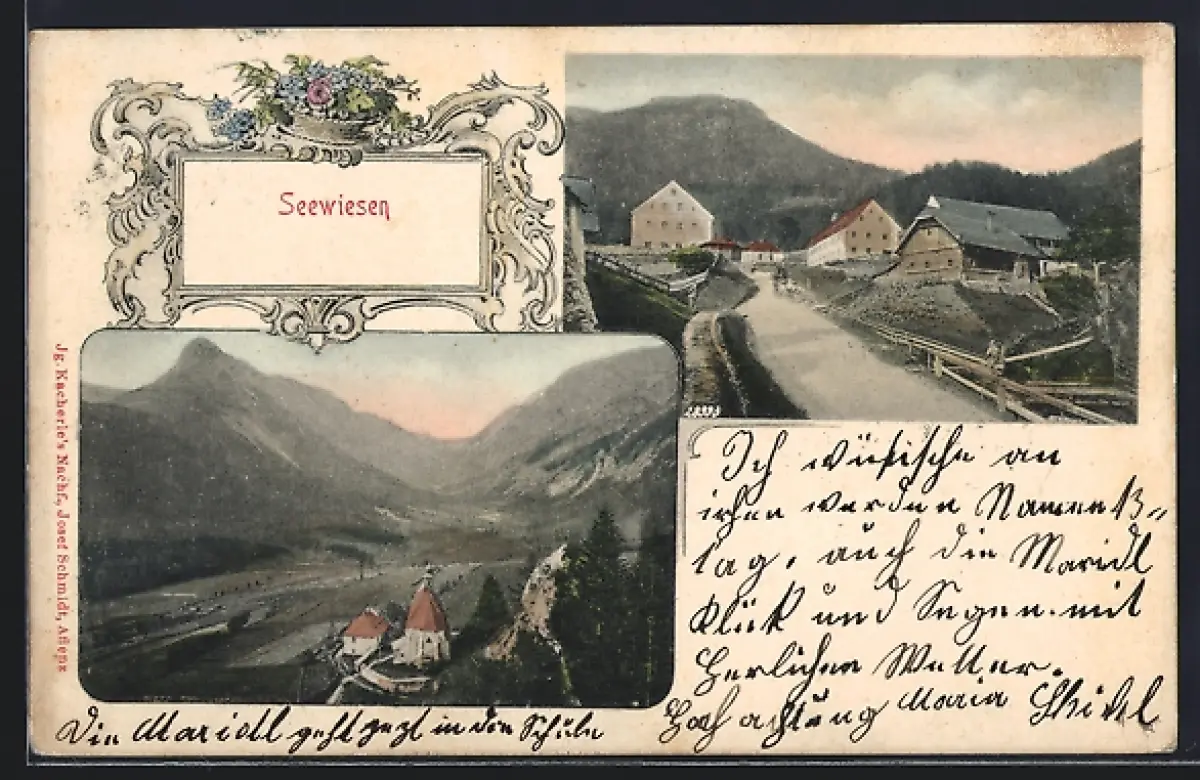 Seewiesen
Jg. Kacherle's Nachf., Josef Schmidt, Aflenz
Ich wühische an
irhen werden Namens
tag, auch die Maridl
Klük und Segen. mit
Herlichen
Hoch achtung Maria
Die Maridl geht jezt in die Schule